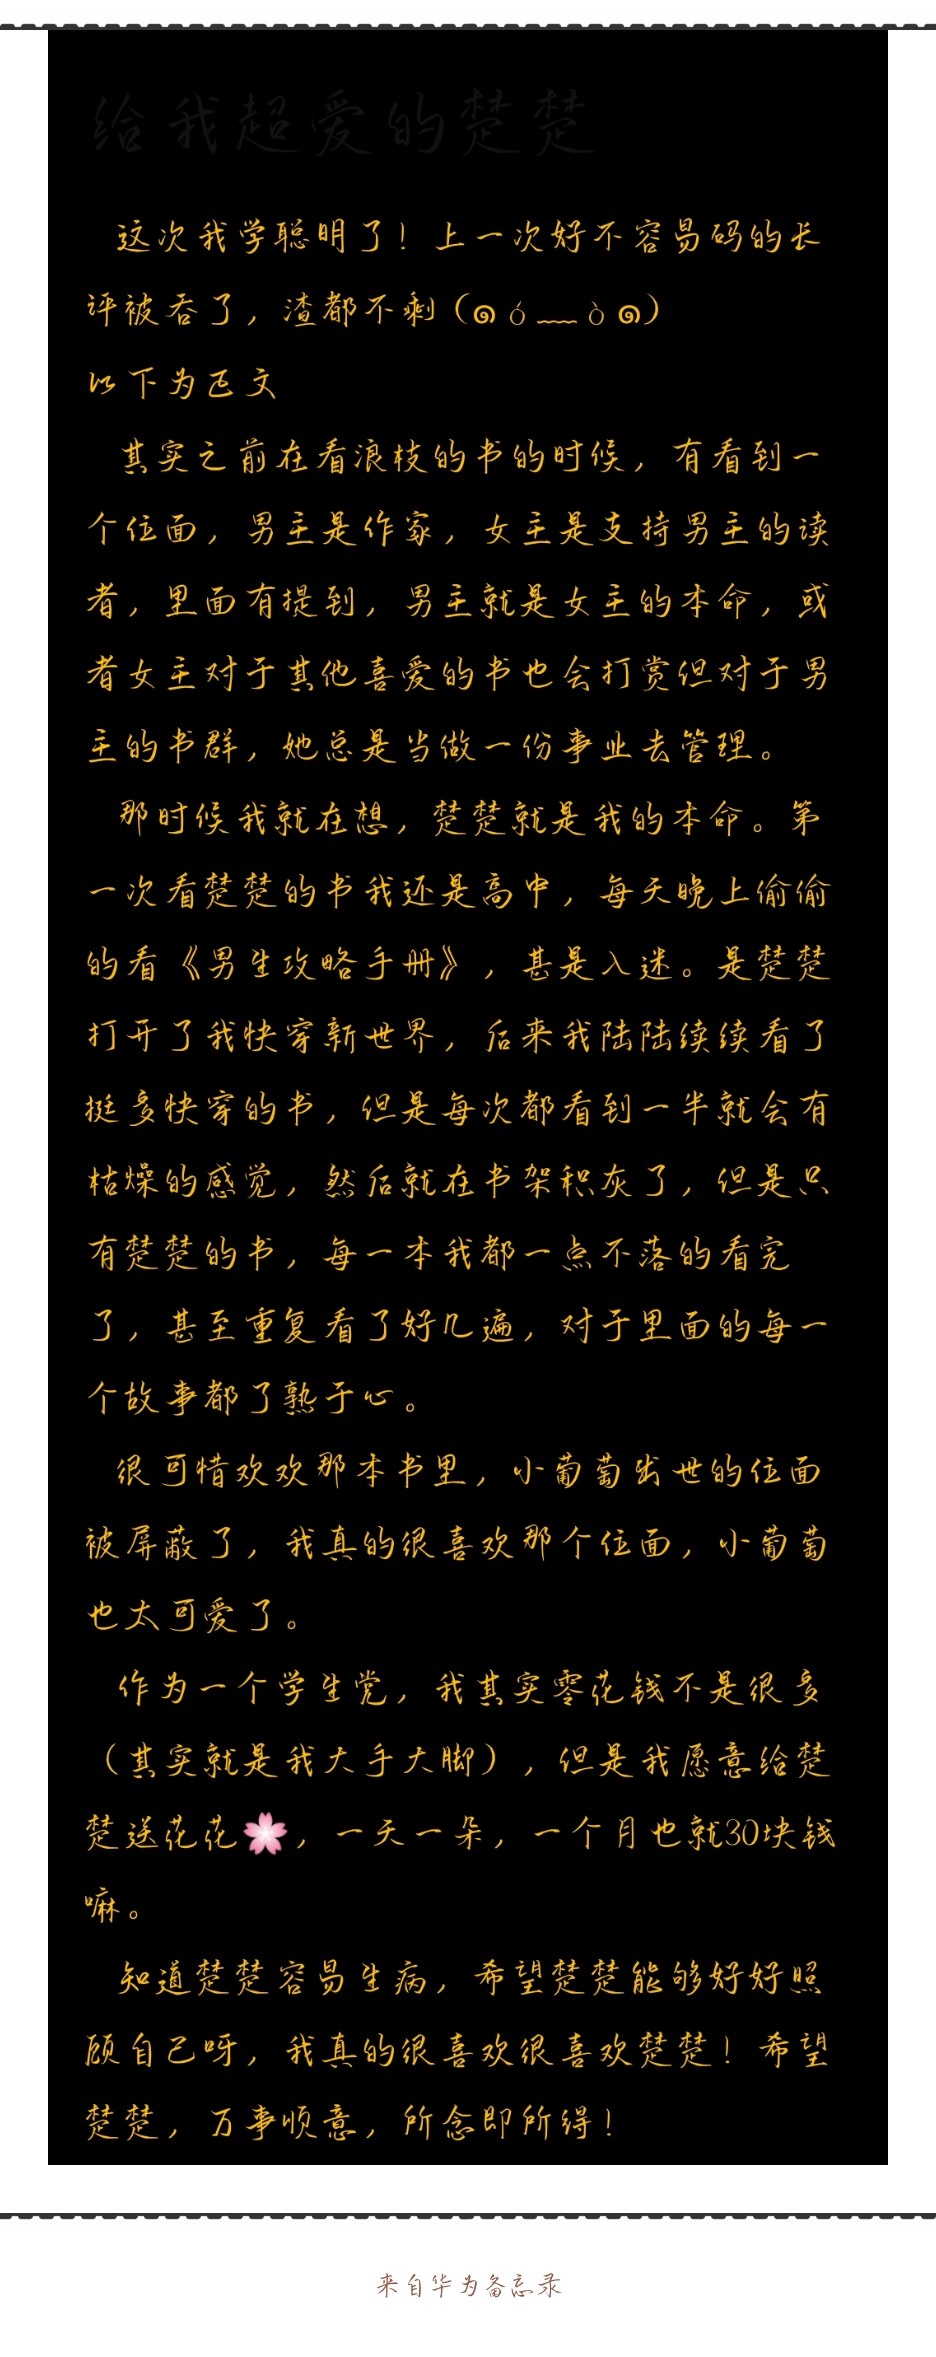 给我超爱的楚楚
这次我学聪明了！上一次好不容易码的长
评被吞了，渣都不剩（๑ó﹏ò๑）
以下为正文
其实之前在看浪枝的书的时候，有看到一
个位面，男主是作家，女主是支持男主的读
者，里面有提到，男主就是女主的本命，或
者女主对于其他喜爱的书也会打赏但对于男
主的书群，她总是当做一份事业去管理。
那时候我就在想，楚楚就是我的本命。第
一次看楚楚的书我还是高中，每天晚上偷偷
的看《男生攻略手册》，甚是入迷。是楚楚
打开了我快穿新世界，后来我陆陆续续看了
挺多快穿的书，但是每次都看到一半就会有
枯燥的感觉，然后就在书架积灰了，但是只
有楚楚的书，每一本我都一点不落的看完
了，甚至重复看了好几遍，对于里面的每一
个故事都了熟于心。
很可惜欢欢那本书里，小葡萄出世的位面
被屏蔽了，我真的很喜欢那个位面，小葡萄
也太可爱了。
作为一个学生党，我其实零花钱不是很多
（其实就是我大手大脚），但是我愿意给楚
楚送花花🌸，一天一朵，一个月也就30块钱
嘛。
知道楚楚容易生病，希望楚楚能够好好照
顾自己呀，我真的很喜欢很喜欢楚楚！希望
楚楚，万事顺意，所念即所得！
来自华为备忘录